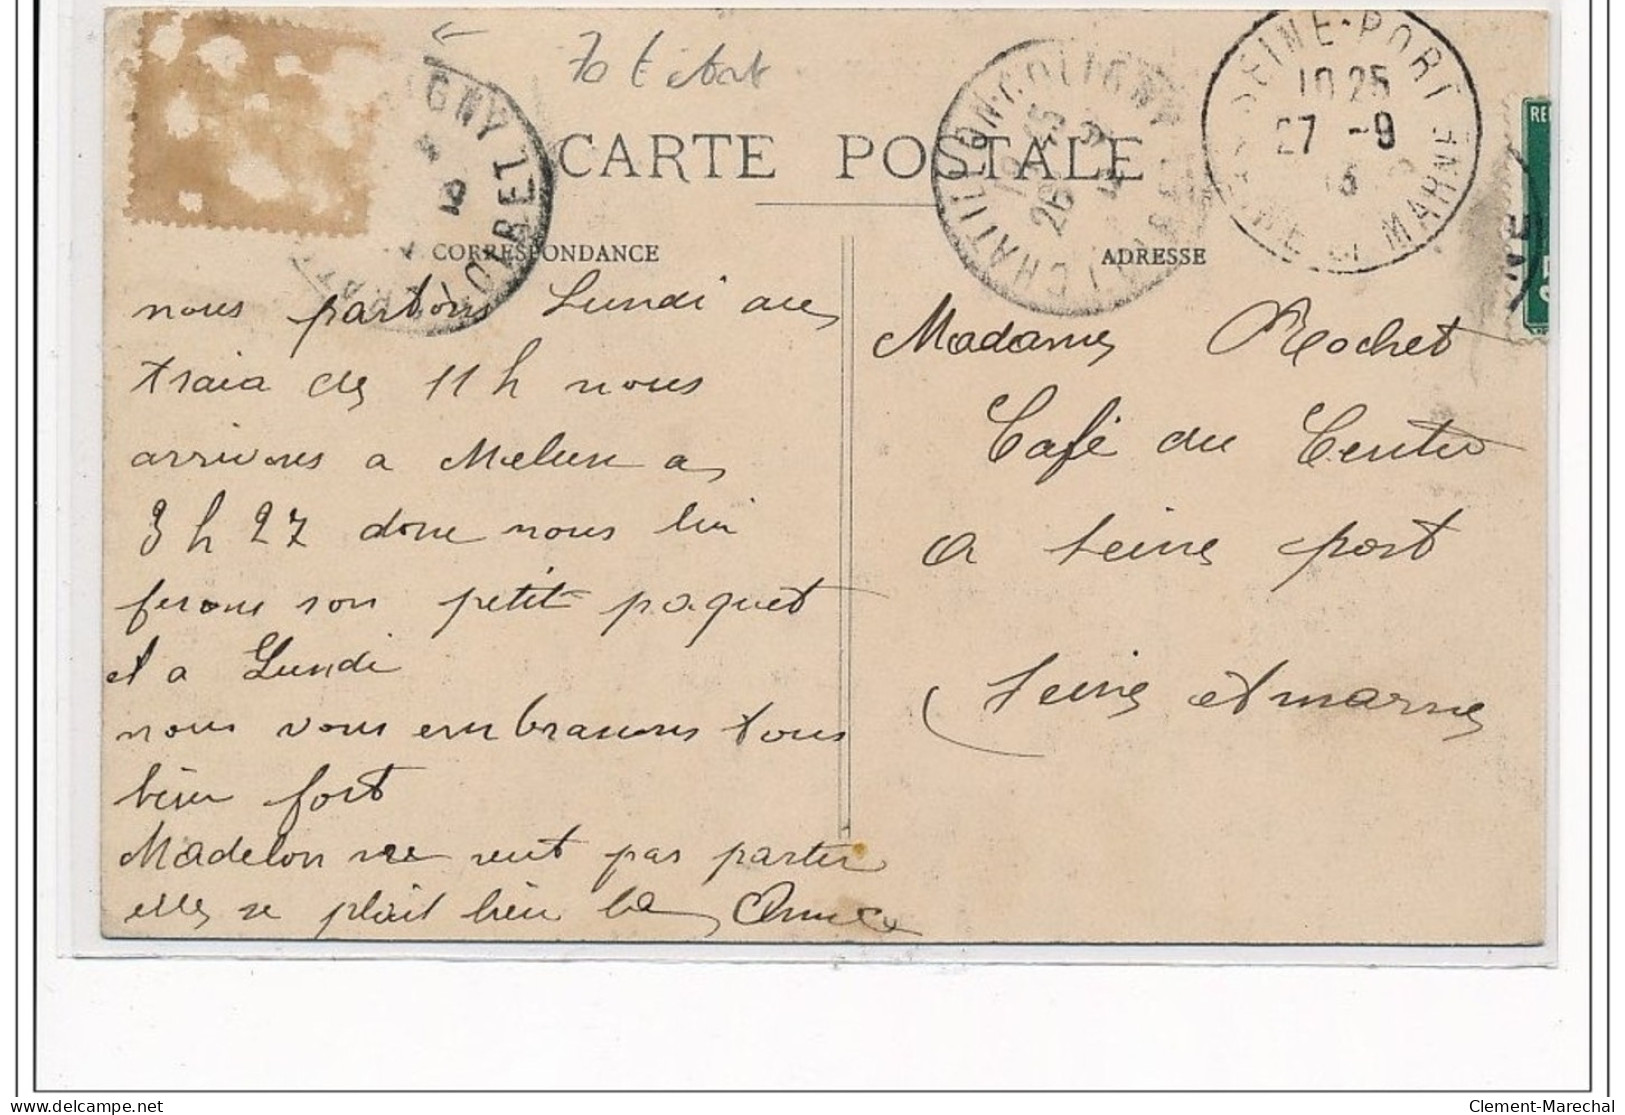 CARTE POSTALE
CORRESPONDANCE
ADRESSE
CHATILLON-COLIGNY
LOIRET
26
IGNY
LOIRET
SEINE-PORT
10 25
27 -9
SEINE ET MARNE
nous partons Lundi au
train de 11 h nous
arrivons a Melun a
3 h 27 donc nous lui
ferons son petit paquet
et a Lundi
nous vous embrassons tous
bien fort
Madelon ne veut pas partir
elle se plait bien la
Madame Rochet
Café du Centre
a Seine port
Seine et marne
Clement-Marechal